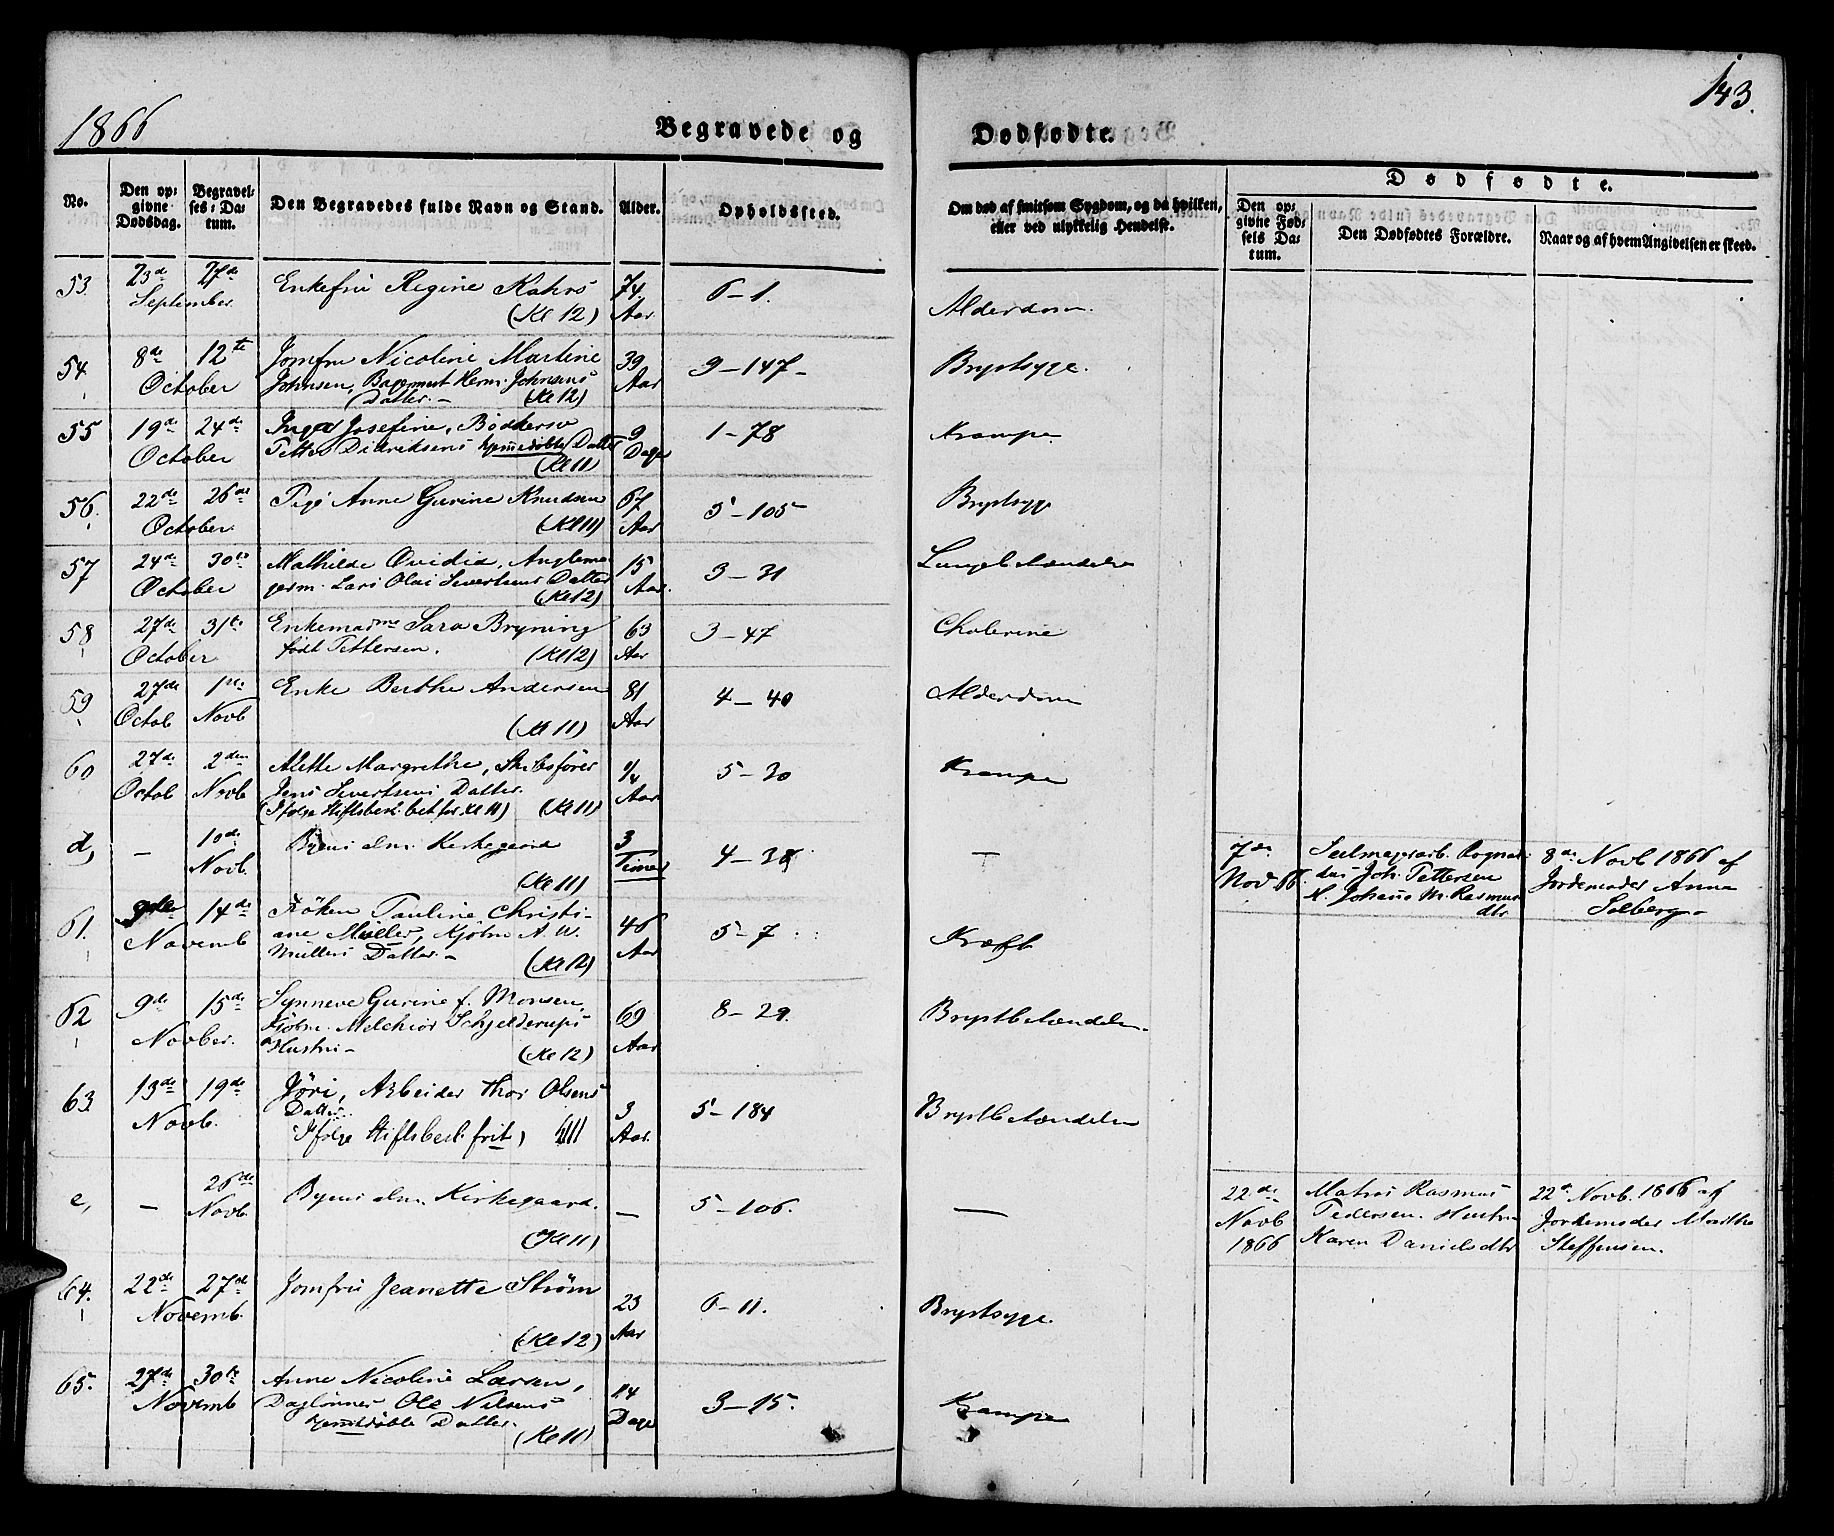 1866
Begravede og
Dødfødte.
143.
No.
Den opgivne Dødsdag.
Begravelses-Datum.
Den Begravedes fulde Navn og Stand.
Alder.
Opholdssted.
Om død af smitsom Sygdom, og da hvilken, eller ved ulykkelig Hendelse.
Dødfødte.
Den opgivne Fødsels Datum.
Den Dødfødtes Forældre.
Naar og af hvem Angivelsen er skeed.
53. 23de 27de Enkefru Regine Kahrs 74 6-1. Alderdom.
September. (Kl 12) Aar
54 8de 12te Jomfru Nicoline Martine 39 9-147- Brystsyge.
October Johnsen, Bagermest Herm. Johnsens Aar
Datter.- (Kl 12)
55 19de 24de Inga Josefine, Bødkersv 9 1-78 Krampe
October Petter Didriksens hjemmedøbte Datter Dage
(Kl 11)
56. 22de 26de Pige Anne Gurine Knudsen 67 5-105 Brystsyge
October. (Kl 11) Aar
57 24de 30te Mathilde Ovidia, 15 3-31 Lungebetændelse
October Lars Olai Sivertsens Datter Aar.
(Kl 12)
58 27de 31te Enkemadme Sara Bryning 63 3-47 Cholerine
October født Pettersen. (Kl 12) Aar
59 27de 1ste Enke Berthe Andersen 81 4-40 Alderdom
Octob Novb (Kl 11) Aar
60 27de 2den Alette Margrethe, Skibsfører 1/4 5-30 Krampe
Octob Novb Jens Sivertsens Datter Aar
(Ifølge Stiftsbesl. bet for Kl 11) (Kl 11)
d, - 10de Byens alm. Kirkegaard 3 4-38 - 7de Seilmagerarb. Rognal- 8de Novb 1866 af
Novb. (Kl 11) Timer Nov 66. dus Joh. Pettersen Jordemoder Anna
H. Johane M. Rasmus- Solberg-
dtr
61. 9de 14de Frøken Pauline Christi- 46 5-7 Kræft
Novemb ane Müller, Kjøbm A. W. Aar
Müllers Datter.- (Kl 12)
62 9de 15de Synneve Gurine f. Monsen, 69 8-29. Brystbetændelse.
Novber. Kjøbm. Melchior Schjelderups Aar
Hustru- (Kl 12)
63 13de 19de Jøri, Arbeider Thor Olsens 3 5-184 Brystbetændelse
Novb. Datter. Aar.
Ifølge Stiftsbesl. frit)
e, - 26de Byens alm. Kirkegaard. - 5-106. - 22de Matros Rasmus 22de Novb. 1866 af
Novb. (Kl 11) Novb Pedersen. Hustru Jordemoder Marthe
1866 Karen Danielsdtr Steffensen.
64. 22de 27de Jomfru Jeanette Strøm 23 6-11. Brystsyge.
Novemb. (Kl 12) Aar
65. 27de 30te Anne Nicoline Larsen, 14 3-15. Krampe
Novemb Daglønner Ole Nilsens Dage
hjemmedøbte Datter. (Kl 11)